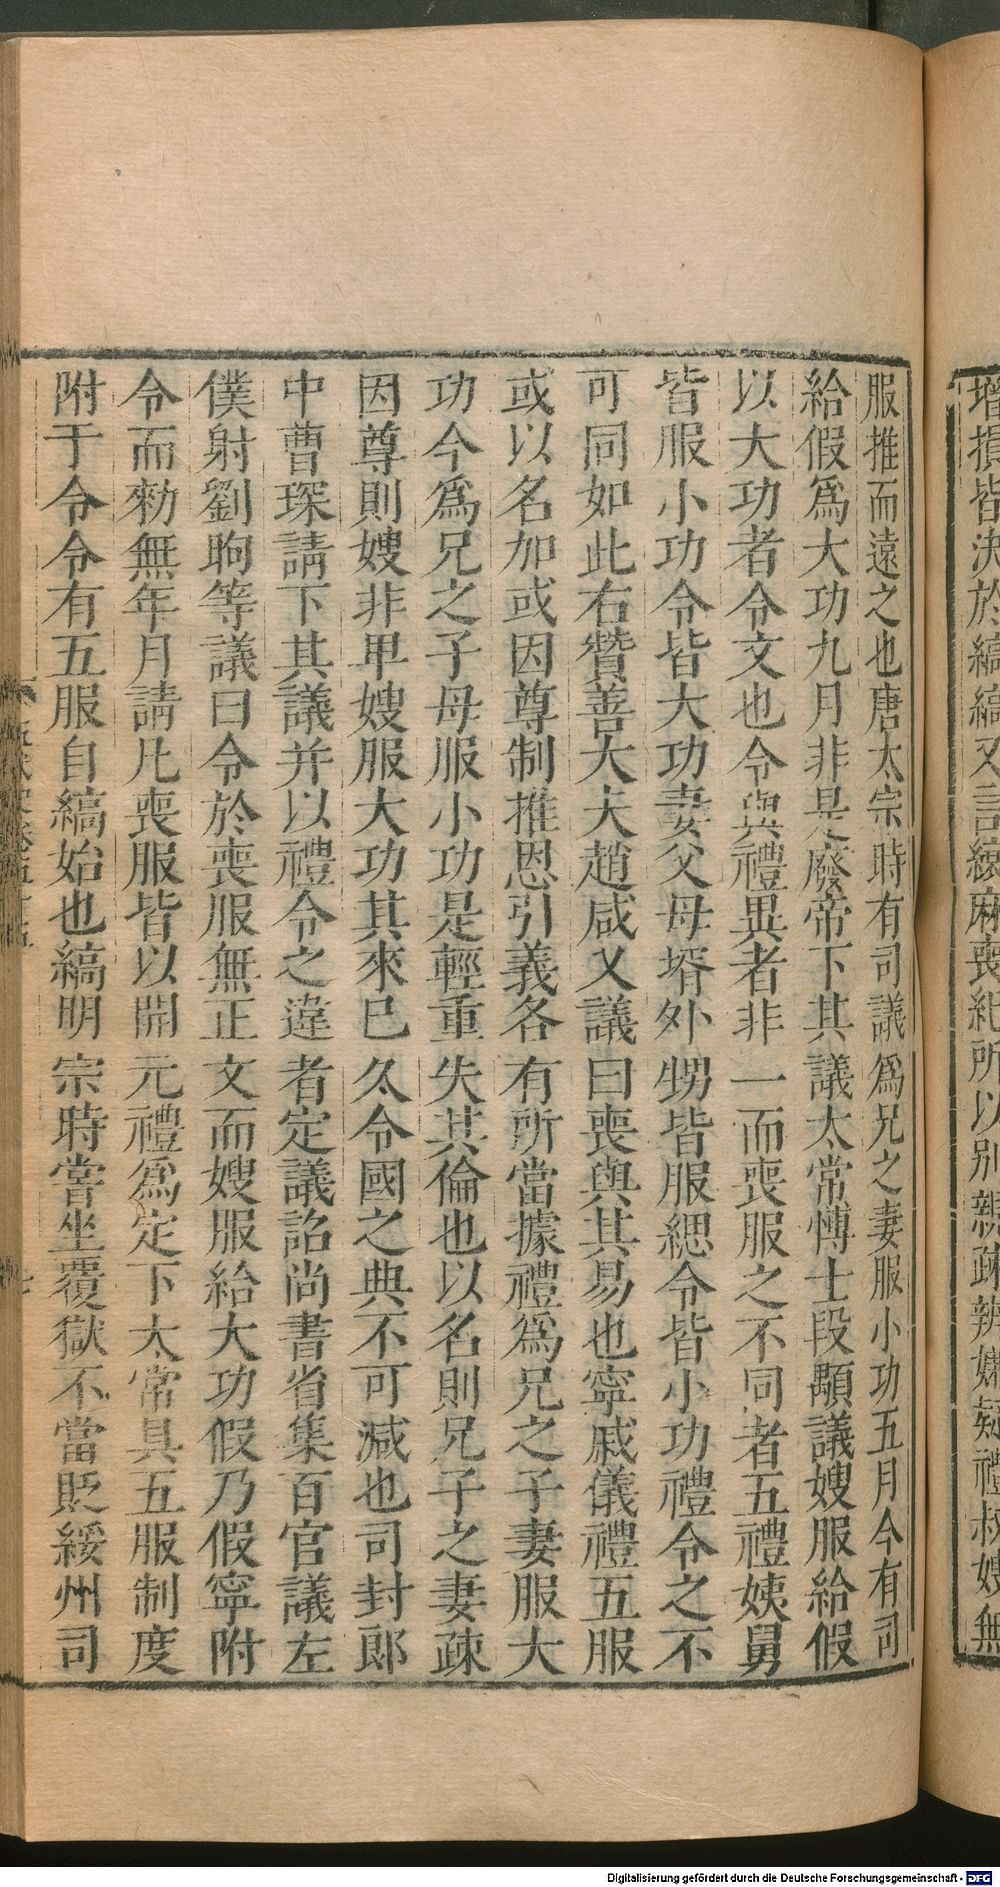 增損皆決於縞縞又言縗麻喪紀所以別親疎辨嫌疑禮叔嫂無
服推而遠之也唐太宗時有司議爲兄之妻服小功五月今有司
給假爲大功九月非是廢帝下其議太常愽士段顒議嫂服給假
以大功者令文也令與禮異者非一而喪服之不同者五禮姨舅
皆服小功令皆大功妻父母壻外甥皆服緦令皆小功禮令之不
可同如此右贊善大夫趙咸乂議曰喪與其易也寧戚儀禮五服
或以名加或因尊制推恩引義各有所當據禮爲兄之子妻服大
功今爲兄之子母服小功是輕重失其倫也以名則兄子之妻疎
因尊則嫂非甲嫂服大功其來已久令國之典不可減也司封郎
中曹琛請下其議并以禮令之違者定議詔尚書省集百官議左
僕射劉昫等議曰令於喪服無正文而嫂服給大功假乃假寧附
令而勑無年月請凡喪服皆以開元禮爲定下太常具五服制度
附于令令有五服自縞始也縞明宗時嘗坐覆獄不當貶綏州司
七
Digitalisierung gefördert durch die Deutsche Forschungsgemeinschaft - DFG